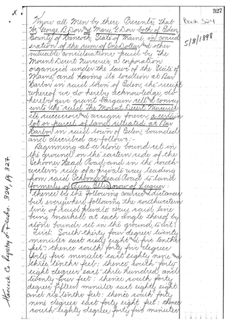 Know all Men by these Presents, that
We George B. Dorr & Mary G. Dorr both of Eden,
County of Hancock, State of Maine, in consid-
eration of the sum of One dollar & other
valuable considerations paid by the
Mount Desert Nurseries a corporation
organized under the laws of the State of
Maine, and having its location at Bar
Harbor in said town of Eden, the receipt
whereof we do hereby acknowledge, do
hereby give, grant, bargain, sell & convey
unto the said the Mount Desert Nurseries
its successors & assigns forever, a certain
lot or parcel of land situated at Bar
Harbor in said town of Eden, bounded
and described as follows:
Beginning at a stone bound set in
the ground on the eastern side of the
Schooner Head Road and in the south
western side of a private way leading
from said Schooner Head Road to land
formerly of
thence by the following courses & distances
but everywhere following the southwestern
line of said private way, said line
being marked at each angle thereof by
stone bounds set in the ground to wit:
East. South thirty four degrees twenty
minutes east sixty eight & five tenths
feet: thence south forty five degrees
forty five minutes east eighty nine &
three tenths feet: thence south forty
eight degrees east three hundred and
twenty four feet: thence south forty
degrees fifteen minutes east eighty eight
and six tenths feet: thence south forty
nine degrees east forty eight feet: thence
south eighty degrees forty five minutes
327
Book 324
5/8/1898
Hancock Co. Registry of Deeds 324, pg. 327.